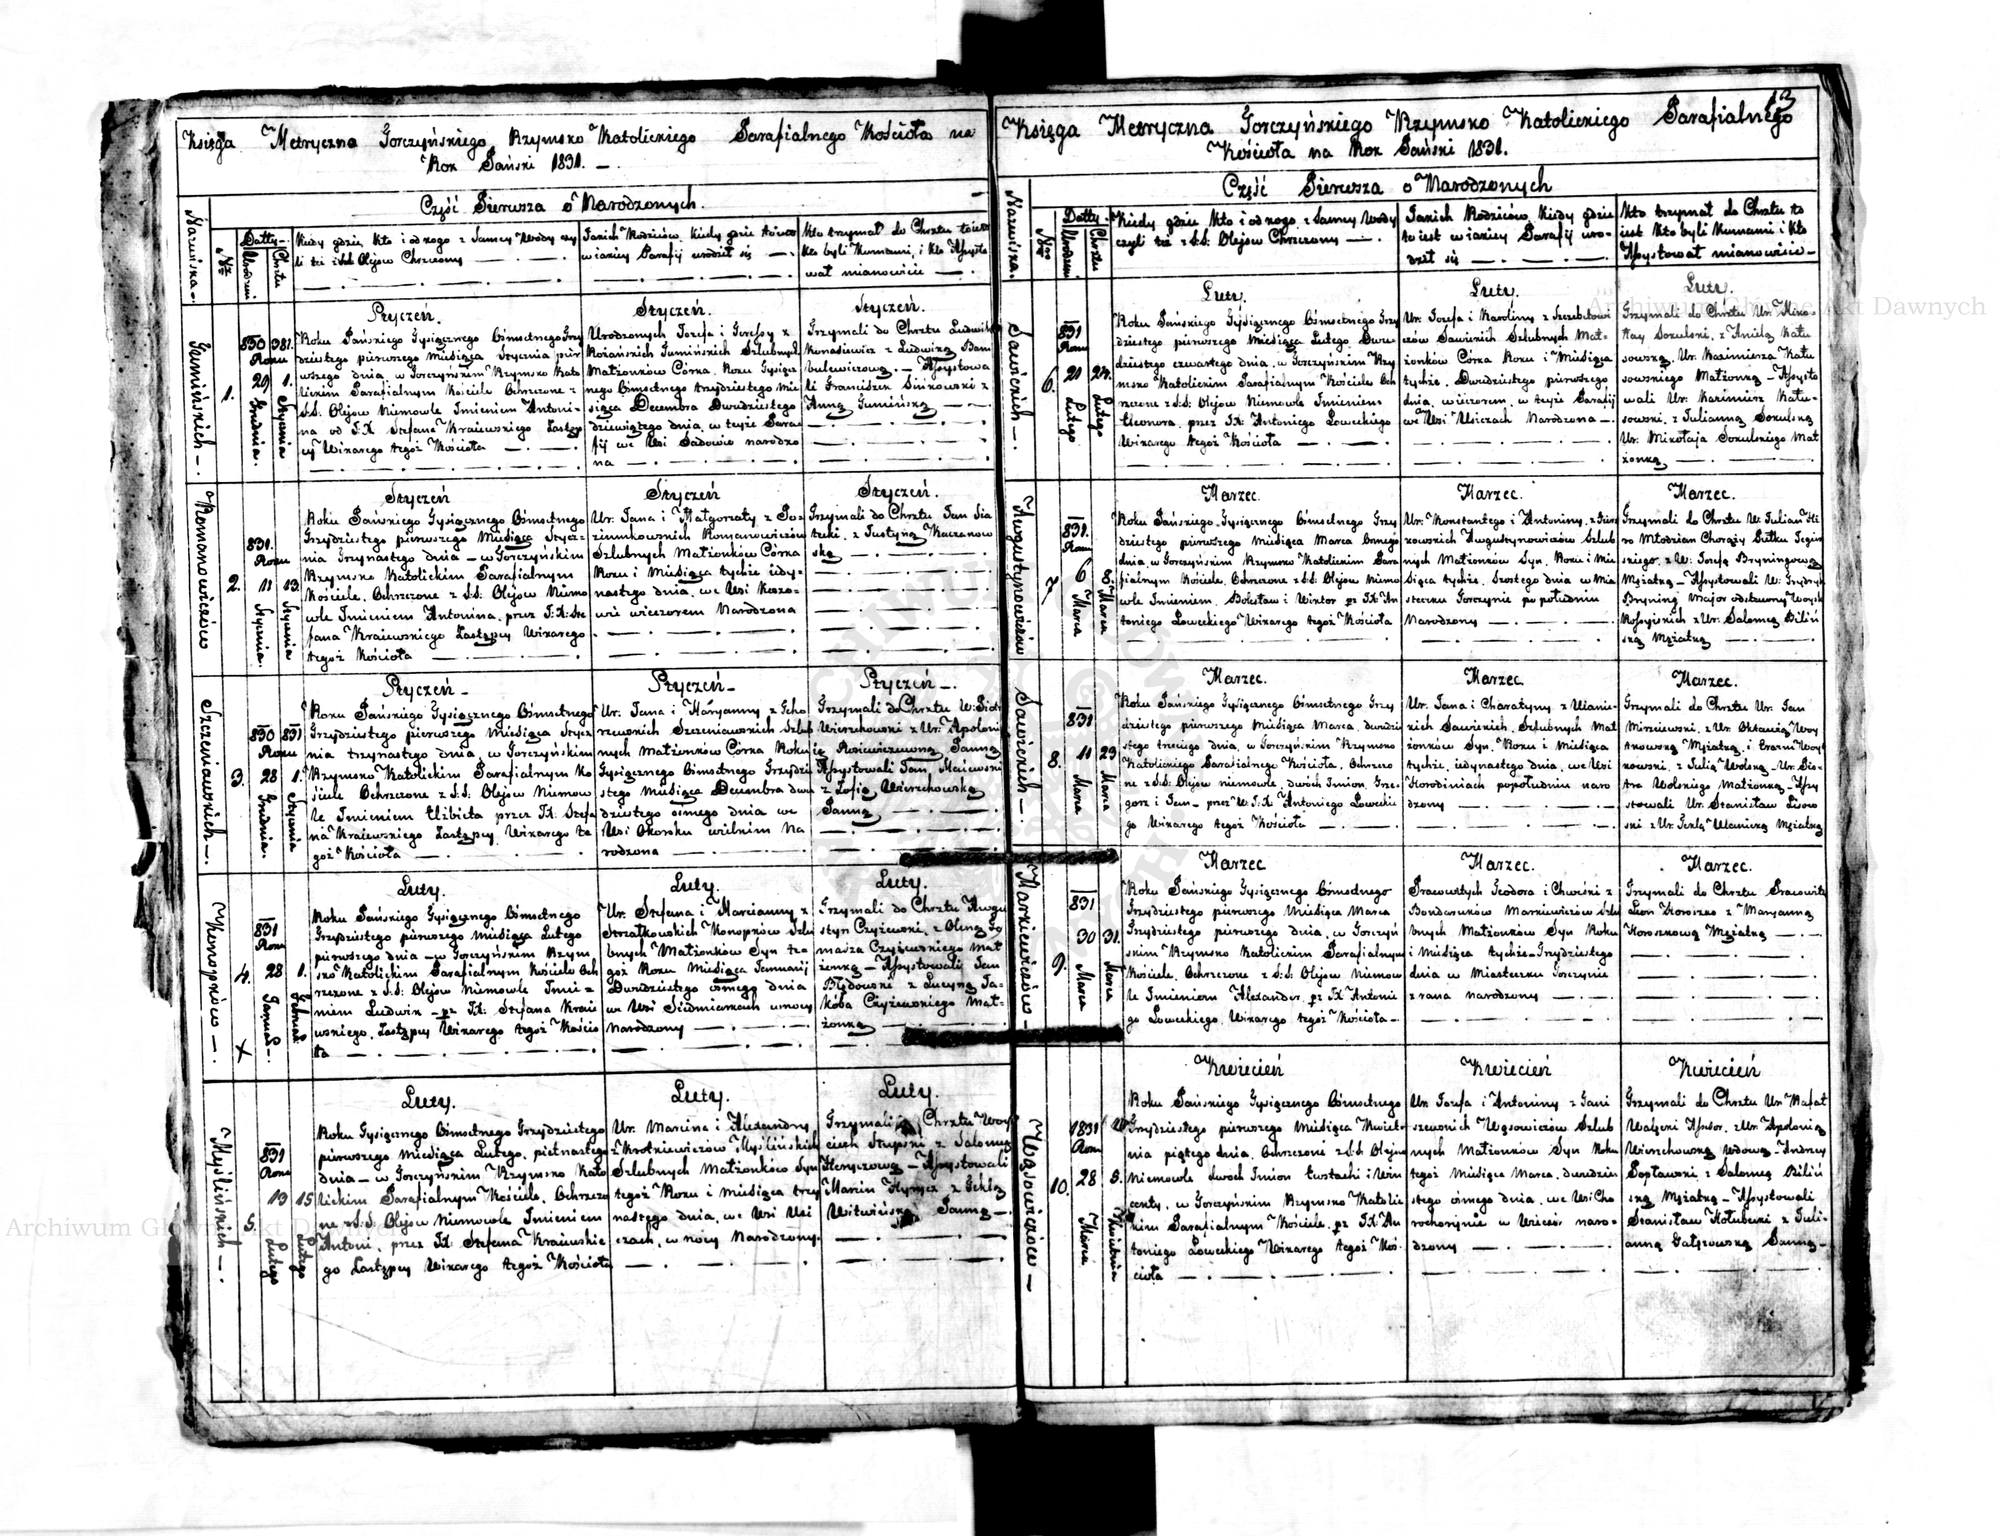 13
Księga Metryczna Gorczyńskiego Rzymsko Katolickiego Parafialnego Kościoła na
Rok Pański 1831. —
Część Pierwsza o Narodzonych.
Nazwiska.
Nr
Datty
Urodzeni
Chrztu
Kiedy gdzie, Kto i od kogo z Samey Wody czy
li też i Olejów Chrzczony
Jakich Rodziców, Kiedy gdzie to iest
w iakiey Parafij urodził się
Kto trzymał do Chrztu to iest
kto byli Kumami, i kto Assysto
wał mianowicie
Gumińskich
1.
830
831.
Roku
29
Grudnia.
1.
Stycznia
Styczeń.
Roku Pańskiego Tysiącznego Ośmsetnego Trzy
dziestego pierwszego Miesiąca Stycznia pier
wszego dnia, w Gorczyńskim Rzymsko Kato
lickim Parafialnym Kościele Ochrzczone z
S.S. Olejów Niemowle Imieniem Antoni-
na od J.X. Stefana Kraiewskiego Zastęp
cy Wikarego tegoż Kościoła
Styczeń.
Urodzonych Józefa i Terefsy z
Rożańskich Gumińskich Szlubnych
Małżonków Córka, Roku Tysiącz
nego Ośmsetnego trzydziestego Mie
siąca Decembra Dwudziestego
dziewiątego dnia, w teyże Para
fij we Wsi Sadowie narodzo
na
Styczeń.
Trzymali do Chrztu Ludwik
Kunasiewicz z Ludwiką Bam
bulewiczową. — Assystowa
li Franciszek Sinkowski z
Anną Gumińską
Romanowiczów
2.
831.
Roku
11
Stycznia.
13.
Stycznia
Styczeń
Roku Pańskiego Tysiącznego Ośmsetnego
Trzydziestego pierwszego Miesiąca Stycz-
nia Trzynastego dnia — w Gorczyńskim
Rzymsko Katolickim Parafialnym
Kościele, Ochrzczone z S.S. Olejów Niemo
wle Imieniem Antonina, przez J.X. Ste
fana Kraiewskiego Zastępcy Wikarego
tegoż Kościoła
Styczeń
Ur. Jana i Małgorzaty z
Romanowiczów
Szlubnych Małżonków Córka
Roku i Miesiąca tychże iedy-
nastego dnia, we Wsi
wie wieczorem Narodzona
Styczeń.
Trzymali do Chrztu Jan Sia
z Justyną Kaczanow
ską
Szczeniawskich
3.
830
831
Roku
28
Grudnia.
1.
Stycznia
Styczeń
Roku Pańskiego Tysiącznego Ośmsetnego
Trzydziestego pierwszego Miesiąca Stycz
nia trzynastego dnia, w Gorczyńskim
Rzymsko Katolickim Parafialnym Ko
ściele Ochrzczone z S.S. Olejów Niemow
le Imieniem Elżbieta przez J.X. Stefa
na Kraiewskiego Zastępcy Wikarego te
goż Kościoła
Styczeń
Ur. Jana i Maryanny z
Szczeniawskich Szlub
nych Małżonków Córka Roku
Tysiącznego Ośmsetnego Trzydzie
stego Miesiąca Decembra dwu
dziestego ósmego dnia we
Wsi Okorsku wielnim Na
rodzona
Styczeń
Trzymali do Chrztu W. Piotr
Wierzchowski z Ur. Apoloni
ią Panną
Assystowali Jan Maiewski
z Zofią Wierzchowską
Panną
Konopków
4.
X
831
Roku
28
1.
Luty.
Roku Pańskiego Tysiącznego Ośmsetnego
Trzydziestego pierwszego Miesiąca Lutego
pierwszego dnia — w Gorczyńskim Rzym
sko Katolickim Parafialnym Kościele Och
rzczone z S.S. Olejów Niemowle Imie-
niem Ludwik — pz J.X. Stefana Kraie
wskiego, Zastępcy Wikarego tegoż Kościo
ła
Luty.
Ur. Stefana i Marcianny z
Strzałkowskich Konopków Szlu
bnych Małżonków Syn te-
goż Roku Miesiąca Januarij
Dwudziestego ósmego dnia
we Wsi Siedmiarkach w nocy
Narodzony
Luty.
Trzymali do Chrztu Augu
styn Czyżewski, z Olną To
masza Czyżewskiego Mał
żonką — Assystowali Jan
Błędowski z Lucyną Ja-
kóba Czyżewskiego Mał-
żonką
Myślińskich
5.
831
Roku
13
Lutego
15
Lutego
Luty.
Roku Tysiącznego Ośmsetnego Trzydziestego
pierwszego Miesiąca Lutego, piętnastego
dnia — w Gorczyńskim Rzymsko Kato
lickim Parafialnym Kościele, Ochrzczo
ne z S.S. Olejów Niemowle Imieniem
Antoni, przez J.X. Stefana Kraiewskie
go Zastępcy Wikarego tegoż Kościoła
Luty.
Ur. Marcina i Alexandry
z Krotkiewiczów Myślińskich
Szlubnych Małżonków Syn
tegoż Roku i Miesiąca trzy
nastego dnia, we Wsi Usi
czach, w nocy Narodzony.
Luty.
Trzymali Chrztu Woy
ciech Stupski z Salomeą
Henryczową — Assystowali
Marcin z Teklą
Witwińską Panną
Księga Metryczna Gorczyńskiego Rzymsko Katolickiego Parafialnego
Kościoła na Rok Pański 1831.
Część Pierwsza o Narodzonych
Nazwiska.
Nr
Datty
Urodzeni
Chrztu
Kiedy gdzie Kto i od kogo z Samey Wody
czyli też z S.S. Olejów Chrzczony
Jakich Rodziców, Kiedy gdzie
to iest w iakiey Parafij uro-
dził się
Kto trzymał do Chrztu to
iest kto byli Kumami i kto
Assystował mianowicie
Sawickich
6.
831
Roku
21
Lutego
24.
Lutego
Luty.
Roku Pańskiego Tysiącznego Ośmsetnego Trzy
dziestego pierwszego Miesiąca Lutego, Dwu
dziestego czwartego dnia, w Gorczyńskim Rzy
msko Katolickim Parafialnym Kościele Och
rzczone z S.S. Olejów Niemowle Imieniem
Eleonora, przez J.X. Antoniego Łoweckiego
Wikarego tegoż Kościoła
Luty.
Ur. Jozefa i Karoliny z
Sawickich Szlubnych Mał-
żonków Córka Roku i Miesiąca
tychże, Dwudziestego pierwszego
dnia, wieczorem, w teyże Parafij
we Wsi Usiczach Narodzona
Luty.
Trzymali do Chrztu Ur. Miko-
łay Sokulski, z Anielą Kału
sowską, Ur. Kazimierza Kału
sowskiego Małżonką — Assysto
wali Ur. Kazimierz Kału-
sowski, z Julianną Sokulską
Ur. Mikołaja Sokulskiego Mał
żonką
Augustynowiczów
7
831.
Roku
6
Marca
8.
Marca
Marzec.
Roku Pańskiego Tysiącznego Ośmsetnego Trzy
dziestego pierwszego Miesiąca Marca ósmego
dnia, w Gorczyńskim Rzymsko Katolickim Para
fialnym Kościele, Ochrzczone z S.S. Olejów Niemo
wle Imieniem, Bolesław i Wiktor pz J.X. An
toniego Łoweckiego Wikarego tegoż Kościoła
Marzec.
Ur. Konstantego i Antoniny, z
Augustynowiczów Szlub
nych Małżonków Syn, Roku i Mie
siąca tychże, Szóstego dnia w Mia
steczku Gorczynie po południu
Narodzony
Marzec.
Trzymali do Chrztu W. Julian
Młodzian Chorąży Pułku
z W. Józefą Bryningową
Mężatką — Assystowali W. Frydryk
Bryning Major odstawny Woysk
Rossyiskich z Ur. Salomeą Biliń
ską Mężatką
Sawickich
8.
831
11
Marca
23
Marca
Marzec.
Roku Pańskiego Tysiącznego Ośmsetnego Trzy
dziestego pierwszego Miesiąca Marca, dwudzie
stego trzeciego dnia, w Gorczyńskim Rzymsko
Katolickiego Parafialnego Kościoła, Ochrzczo
ne z S.S. Olejów niemowle, dwóch Imion, Grze-
gorz i Jan — przez W. J.X. Antoniego Łowieckie
go Wikarego tegoż Kościoła
Marzec.
Ur. Jana i Charatyny z
Sawickich, Szlubnych Mał
żonków Syn, Roku i Miesiąca
tychże, iedynastego dnia, we Wsi
Horodniach popołudniu naro
dzony
Marzec.
Trzymali do Chrztu Ur. Jan
z Ur. Oktawią Woy
tkowską Mężatką, i Erazm Woy
tkowski, z Julią Wolską — Ur. Pio-
tra Wolskiego Małżonką — Assy
stowali Ur. Stanisław
ski z Ur. Teklą Ulanicką Mężatką
Markiewiczów
9.
831
30
Marca
31.
Marca
Marzec.
Roku Pańskiego Tysiącznego Ośmsetnego
Trzydziestego pierwszego Miesiąca Marca
Trzydziestego pierwszego dnia, w Gorczyń
skim Rzymsko Katolickim Parafialnym
Kościele, Ochrzczone z S.S. Olejów Niemow
le Imieniem Alexander, pz J.X. Antonie
go Łoweckiego, Wikarego tegoż Kościoła
Marzec.
Pracowitych Teodora i Chwieśki z
Bondaruków Markiewiczów Szlu
bnych Małżonków Syn Roku
i Miesiąca tychże Trzydziestego
dnia w Miasteczku Gorczynie
z rana narodzony
Marzec.
Trzymali do Chrztu Pracowity
Leon Koroszko z Maryanną
Koroszkową Mężatką
Wąsowiczów
10.
1831
Roku
28
Marca
5.
Kwietnia
Kwiecień
Roku Pańskiego Tysiącznego Ośmsetnego
Trzydziestego pierwszego Miesiąca Kwiet-
nia piątego dnia, Ochrzczone z S.S. Olejów
Niemowle dwoch Imion Eustachi i Win
centy, w Gorczyńskim Rzymsko Katolic
kim Parafialnym Kościele, pz J.X. An
toniego Łoweckiego Wikarego tegoż Koś-
cioła
Kwiecień
Ur. Józefa i Antoniny z Jani
szewskich Wąsowiczów Szlub
nych Małżonków Syn Roku
tegoż Miesiąca Marca, dwudzie
stego ósmego dnia, we Wsi Cho
rochorynie w Wieczór naro-
dzony
Kwiecień
Trzymali do Chrztu Ur. Rafał
Ur. Apolonią
Wierzchowską Wdową — Andrzey
Popławski, z Salomeą Biliń
ską Mężatką — Assystowali
Stanisław Hołubecki, z Juli-
anną Panną
Archiwum Główne Akt Dawnych
Archiwum Główne Akt Dawnych